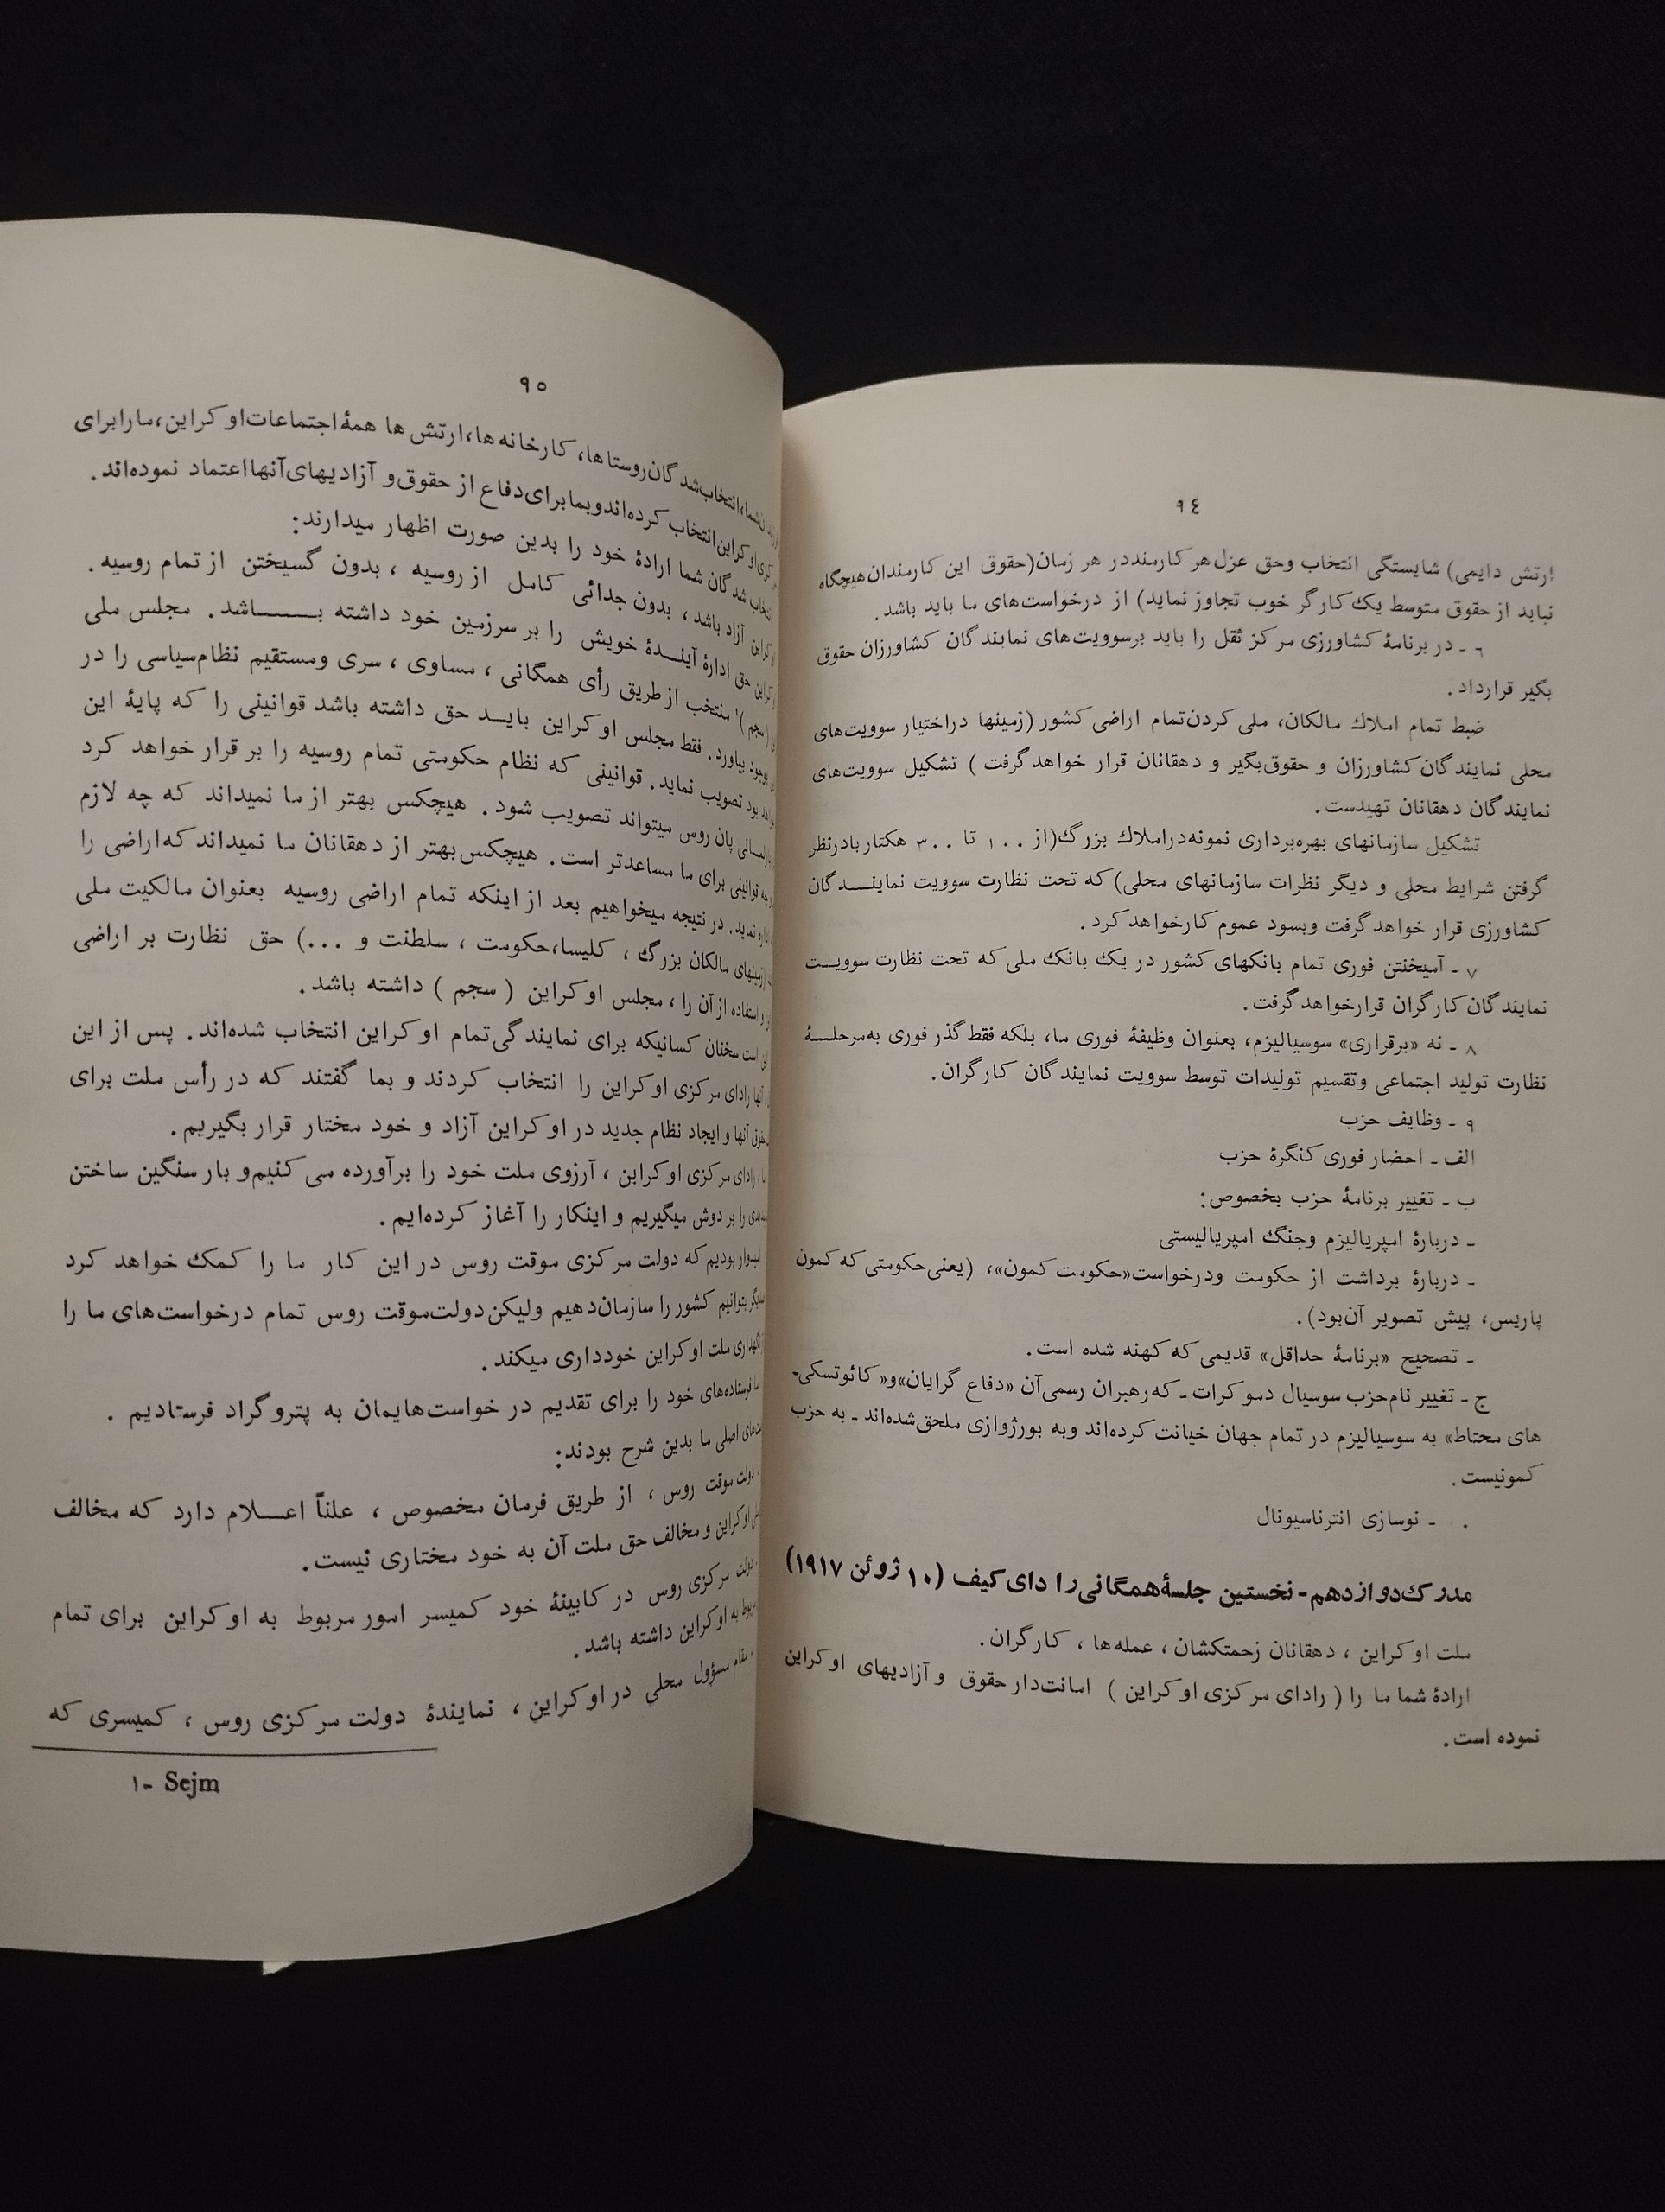 ٩٤
ارتش دایمی) شایستگی انتخاب وحق عزل هر کارمند در هر زمان (حقوق این کارمندان هیچگاه
نباید از حقوق متوسط یک کارگر خوب تجاوز نماید) از درخواست‌های ما باید باشد.
٦ ـ در برنامهٔ کشاورزی مرکز ثقل را باید برسوویت‌های نمایندگان کشاورزان حقوق
بگیر قرارداد.
ضبط تمام املاك مالکان، ملی کردن تمام اراضی کشور (زمینها دراختیار سوویت‌های
محلی نمایندگان کشاورزان و حقوق‌بگیر و دهقانان قرار خواهد گرفت) تشکیل سوویت‌های
نمایندگان دهقانان تهیدست.
تشکیل سازمانهای بهره‌برداری نمونه دراملاك بزرگ (از ١٠٠ تا ٣٠٠ هکتار بادرنظر
گرفتن شرایط محلی و دیگر نظرات سازمانهای محلی) که تحت نظارت سوویت نماینـــدگان
کشاورزی قرار خواهد گرفت وبسود عموم کارخواهد کرد.
٧ ـ آمیختن فوری تمام بانکهای کشور در یک بانک ملی که تحت نظارت سوویـــت
نمایندگان کارگران قرارخواهد گرفت.
٨ ـ نه «برقراری» سوسیالیزم، بعنوان وظیفهٔ فوری ما، بلکه فقط گذر فوری به‌مرحلـــهٔ
نظارت تولید اجتماعی وتقسیم تولیدات توسط سوویت نمایندگان کارگران.
٩ ـ وظایف حزب
الف ـ احضار فوری کنگرهٔ حزب
ب ـ تغییر برنامهٔ حزب بخصوص:
ـ دربارهٔ امپریالیزم وجنگ امپریالیستی
ـ دربارهٔ برداشت از حکومت ودرخواست «حکومت کمون»، (یعنی حکومتی که کمون
پاریس، پیش تصویر آن‌بود).
ـ تصحیح «برنامهٔ حداقل» قدیمی که کهنه شده است.
ج ـ تغییر نام‌حزب سوسیال دموکرات ـ که رهبران رسمی‌آن «دفاع گرایان» و «کائوتسکی‌ـ
های محتاط» به سوسیالیزم در تمام جهان خیانت کرده‌اند وبه بورژوازی ملحق شده‌اند ـ به حزب
کمونیست.
. ـ نوسازی انترناسیونال
مدرك دوازدهم ـ نخستین جلسهٔ همگانی رادای کیف (١٠ ژوئن ١٩١٧)
ملت اوکراین ، دهقانان زحمتکشان ، عمله‌ها ، کارگران.
ارادهٔ شما ما را ( رادای مرکزی اوکراین ) امانت‌دار حقوق و آزادیهای اوکراین
نموده است.
٩٥
انتخاب شدگان روستاها، کارخانه‌ها، ارتش‌ها همهٔ اجتماعات اوکراین، مارا برای
اوکراین انتخاب کرده‌اند وبما برای دفاع از حقوق و آزادیهای آنها اعتماد نموده‌اند.
شدگان شما ارادهٔ خود را بدین صورت اظهار میدارند:
آزاد باشد ، بدون جدائی کامل از روسیه ، بدون گسیختن از تمام روسیه.
حق ادارهٔ آینــدهٔ خویش را بر سرزمین خود داشته بـــــاشد. مجلس ملی
(سجم)١ منتخب از طریق رأی همگانی ، مساوی ، سری ومستقیم نظام‌سیاسی را در
بوجود بیاورد. فقط مجلس اوکراین بایــد حق داشته باشد قوانینی را که پایهٔ این
بود تصویب نماید. قوانینی که نظام حکومتی تمام روسیه را بر قرار خواهد کرد
پان روس میتواند تصویب شود. هیچکس بهتر از ما نمیداند که چه لازم
چه قوانینی برای ما مساعدتر است. هیچکس بهتر از دهقانان ما نمیداند که اراضی را
نماید. در نتیجه میخواهیم بعد از اینکه تمام اراضی روسیه بعنوان مالکیت ملی
(زمینهای مالکان بزرگ ، کلیسا، حکومت ، سلطنت و ...) حق نظارت بر اراضی
و استفاده از آن را ، مجلس اوکراین ( سجم ) داشته باشد.
است سخنان کسانیکه برای نمایندگی تمام اوکراین انتخاب شده‌اند. پس از این
آنها رادای مرکزی اوکراین را انتخاب کردند و بما گفتند که در رأس ملت برای
حقوق آنها و ایجاد نظام جدید در اوکراین آزاد و خود مختار قرار بگیریم.
رادای مرکزی اوکراین ، آرزوی ملت خود را برآورده می کنیم و بار سنگین ساختن
را بر دوش میگیریم و اینکار را آغاز کرده‌ایم.
امیدوار بودیم که دولت مرکزی موقت روس در این کار ما را کمک خواهد کرد
بتوانیم کشور را سازمان‌دهیم ولیکن دولت‌موقت روس تمام درخواست‌های ما را
ملت اوکراین خودداری میکند.
ما فرستاده‌های خود را برای تقدیم درخواست‌هایمان به پتروگراد فرستادیم .
اصلی ما بدین شرح بودند:
دولت موقت روس ، از طریق فرمان مخصوص ، علناً اعــلام دارد که مخالف
اوکراین و مخالف حق ملت آن به خود مختاری نیست.
دولت مرکزی روس در کابینهٔ خود کمیسر امور مربوط به اوکراین برای تمام
مربوط به اوکراین داشته باشد.
مقام مسؤول محلی در اوکراین ، نمایندهٔ دولت مرکزی روس ، کمیسری که
١- Sejm